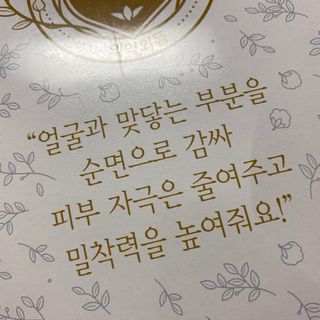 의약외품
“얼굴과 맞닿는 부분을
순면으로 감싸
피부 자극은 줄여주고
밀착력을 높여줘요!”